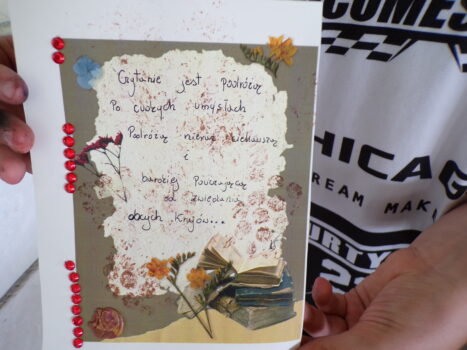 Czytanie jest podróżą
Po cudzych umysłach
Podróżą nieraz ciekawszą
i
bardziej pouczającą
od zwiedzania
obcych krajów...
COMES
CHICAG
REAM MAK
IRTY